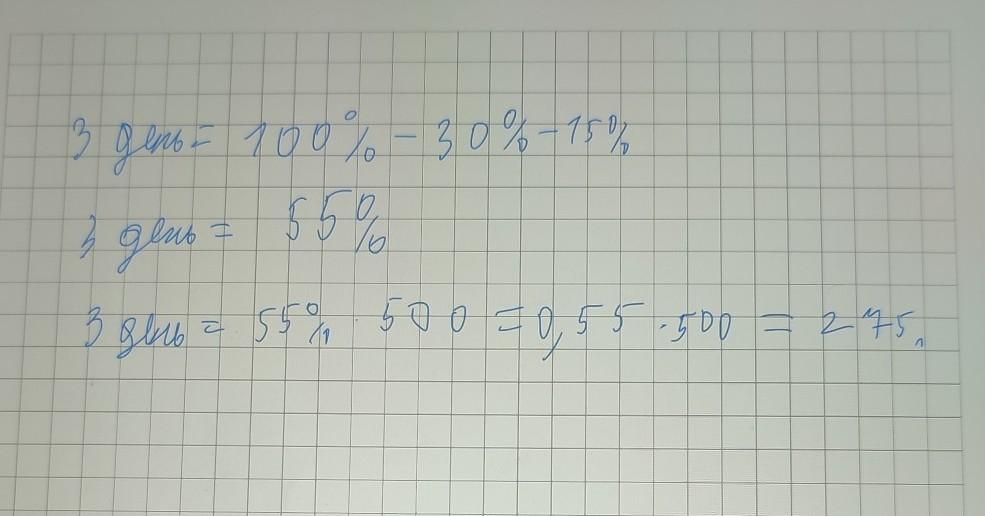 3 день = 100% - 30% - 15%
3 день = 55%
3 день = 55% · 500 = 0,55 · 500 = 275.